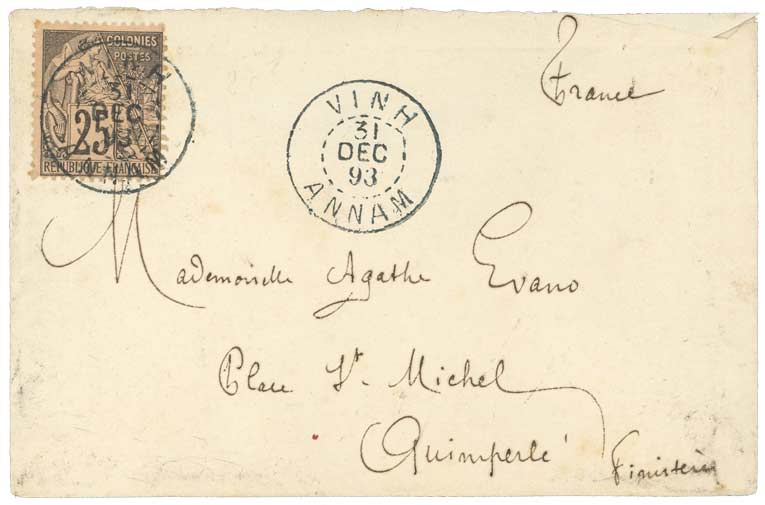 COLONIES
POSTES
25
RÉPUBLIQUE FRANÇAISE
31
DEC
VINH
31
DEC
93
ANNAM
France
Mademoiselle Agathe Evano
Place St. Michel
Quimperlé
Finistère